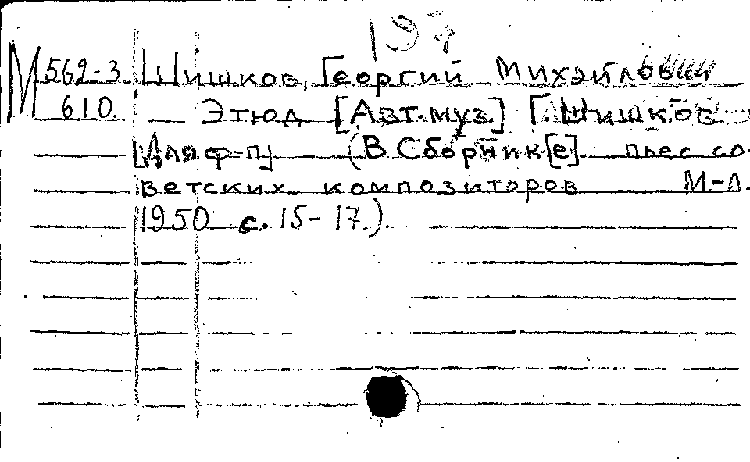 197
М 562-3 Шишков, Георгий Михайлович
610 — Этюд [Авт. муз.] Г. Шишков
[Для ф-п] (В Сборник[е] пьес со
ветских композиторов М-Л.
1950 с. 15-17.)